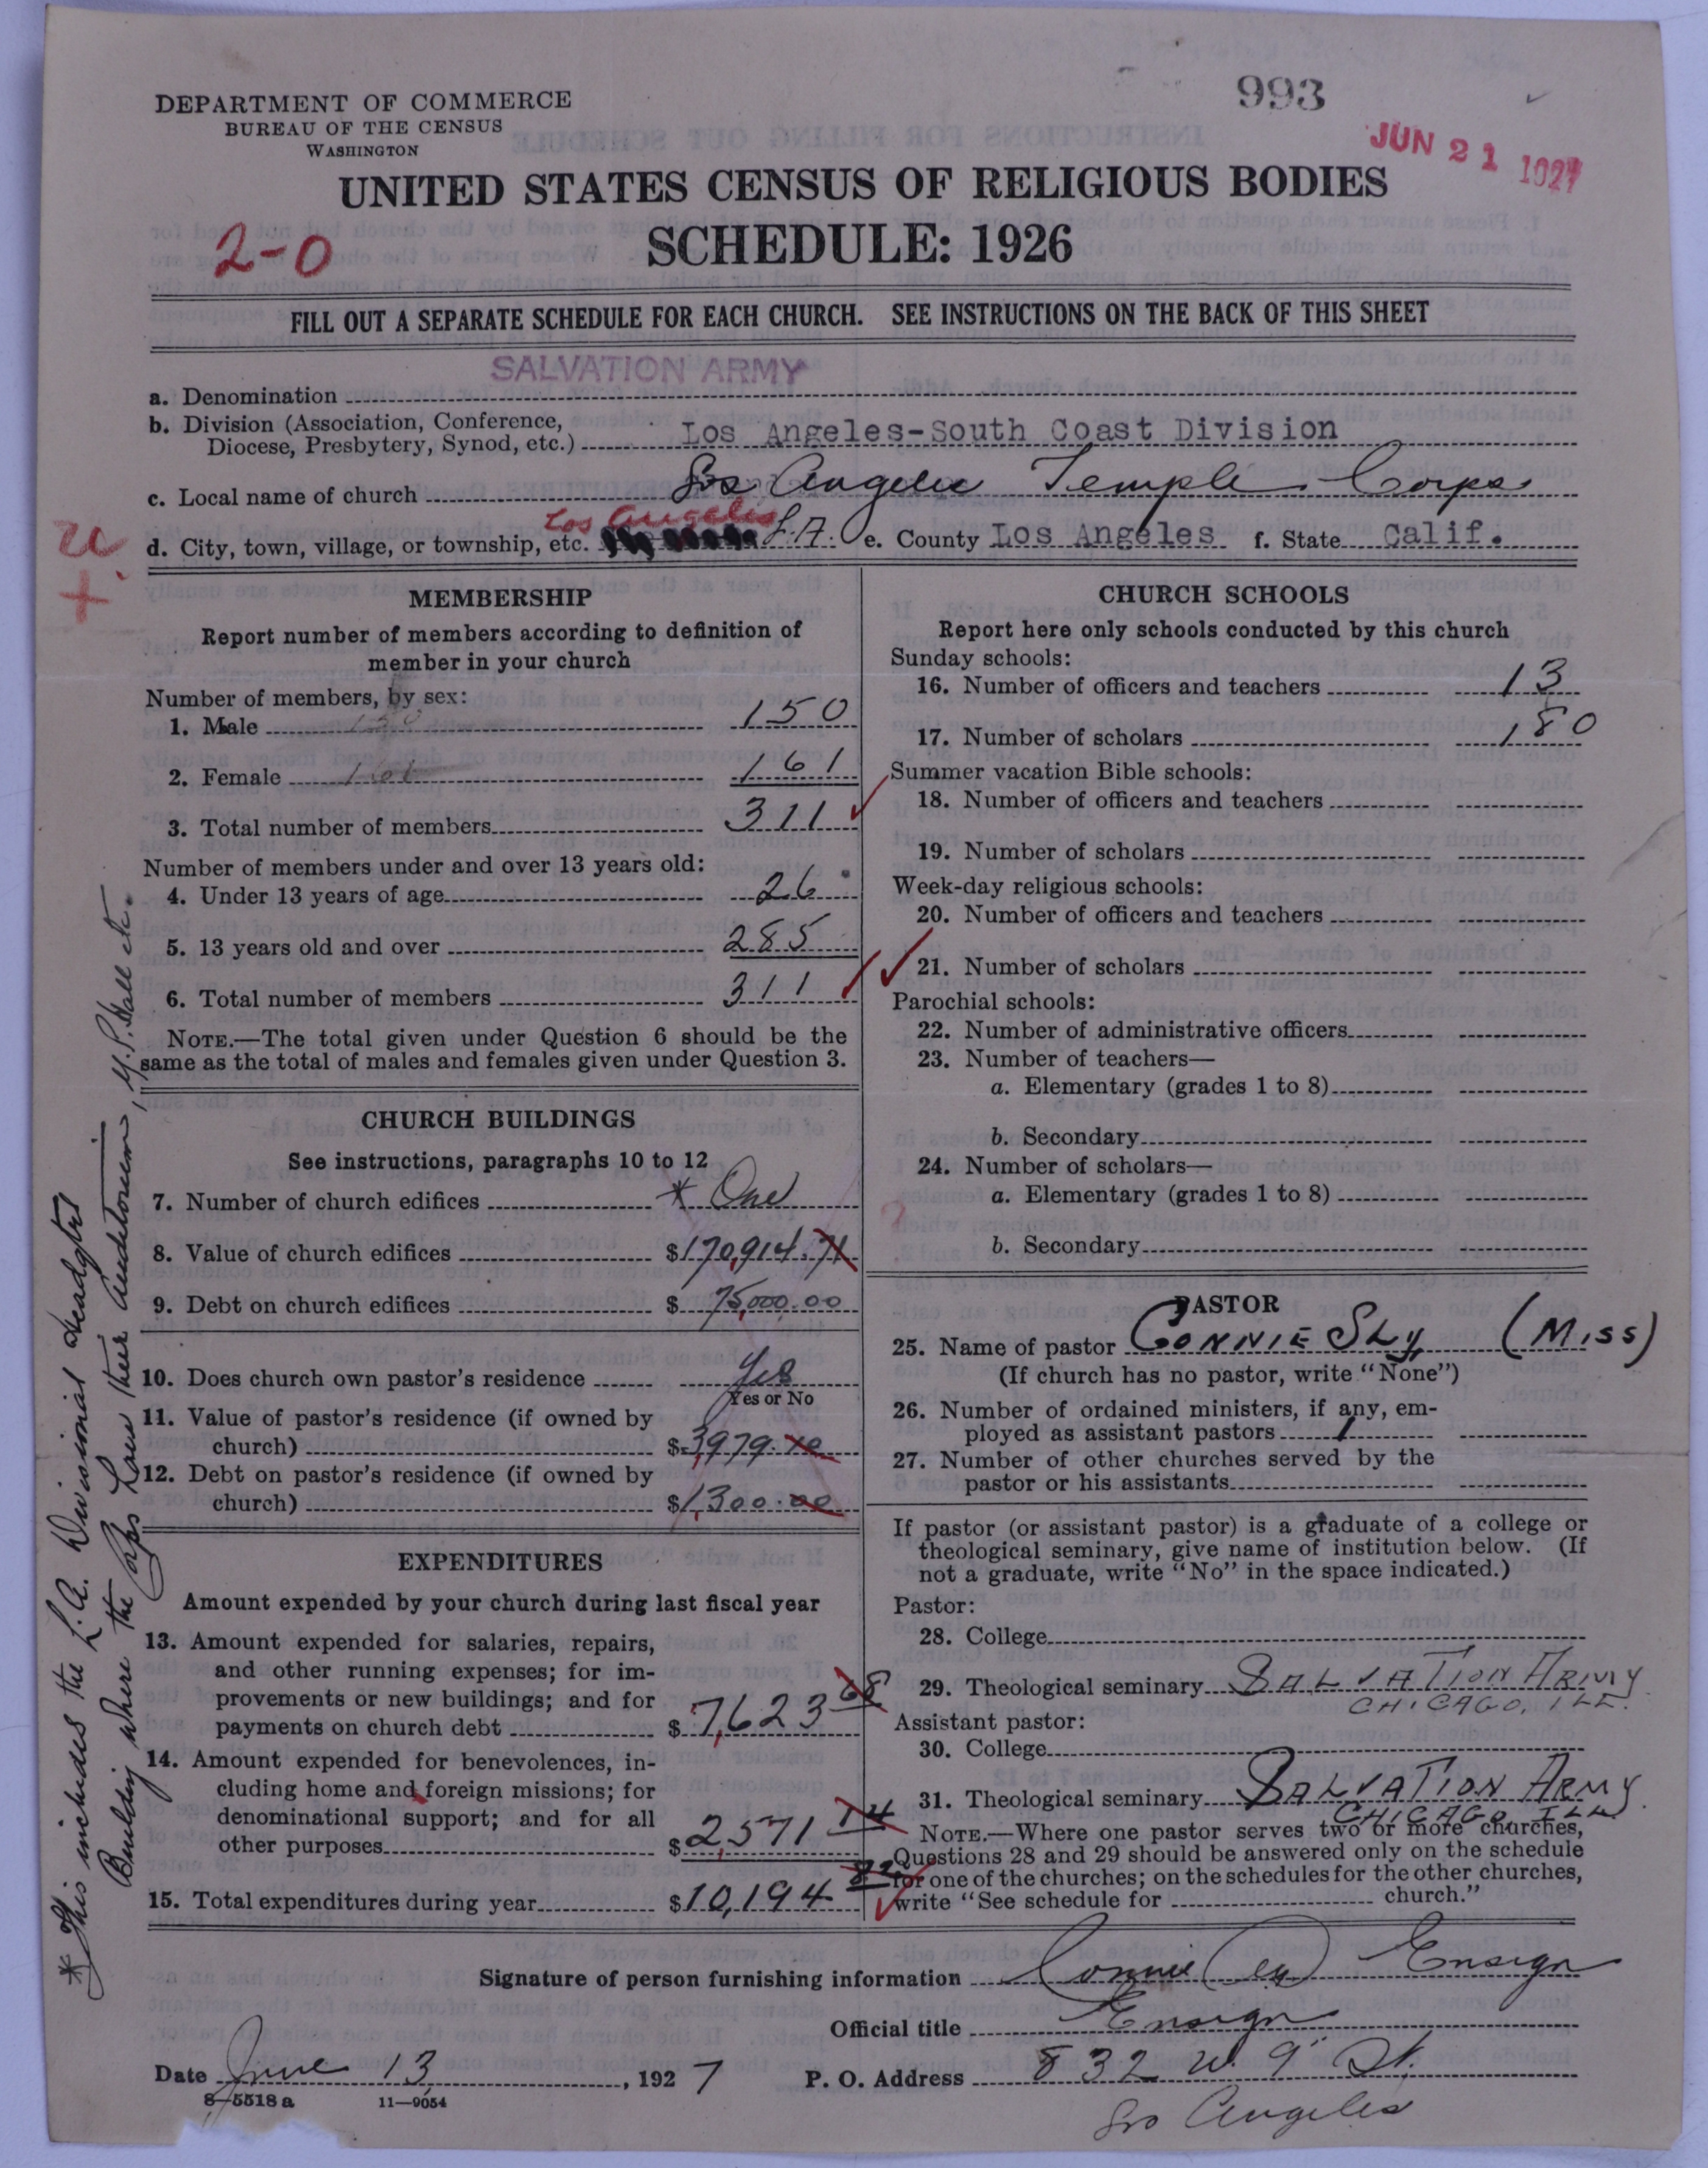 993
DEPARTMENT OF COMMERCE
BUREAU OF THE CENSUS
WASHINGTON
JUN 21 1927
UNITED STATES CENSUS OF RELIGIOUS BODIES
2-0
SCHEDULE: 1926
FILL OUT A SEPARATE SCHEDULE FOR EACH CHURCH. SEE INSTRUCTIONS ON THE BACK OF THIS SHEET
SALVATION ARMY
a. Denomination
b. Division (Association, Conference,
Diocese, Presbytery, Synod, etc.) Los Angeles-South Coast Division
c. Local name of church Los Angeles Temple Corps
Los Angeles
d. City, town, village, or township, etc. L.A. e. County Los Angeles f. State Calif.
MEMBERSHIP
Report number of members according to definition of
member in your church
Number of members, by sex:
1. Male 150 150
2. Female 161 161
3. Total number of members 311
Number of members under and over 13 years old:
4. Under 13 years of age 26
5. 13 years old and over 285
6. Total number of members 311
NOTE.—The total given under Question 6 should be the
same as the total of males and females given under Question 3.
CHURCH BUILDINGS
See instructions, paragraphs 10 to 12
7. Number of church edifices * One
8. Value of church edifices $170,914.71
9. Debt on church edifices $ 75,000.00
10. Does church own pastor's residence Yes
Yes or No
11. Value of pastor's residence (if owned by
church) $3,979.70
12. Debt on pastor's residence (if owned by
church) $1,300.00
EXPENDITURES
Amount expended by your church during last fiscal year
13. Amount expended for salaries, repairs,
and other running expenses; for im-
provements or new buildings; and for
payments on church debt $ 7,623 68
14. Amount expended for benevolences, in-
cluding home and foreign missions; for
denominational support; and for all
other purposes $ 2,571 14
15. Total expenditures during year $10,194 82
CHURCH SCHOOLS
Report here only schools conducted by this church
Sunday schools:
16. Number of officers and teachers 13
17. Number of scholars 180
Summer vacation Bible schools:
18. Number of officers and teachers
19. Number of scholars
Week-day religious schools:
20. Number of officers and teachers
21. Number of scholars
Parochial schools:
22. Number of administrative officers
23. Number of teachers—
a. Elementary (grades 1 to 8)
b. Secondary
24. Number of scholars—
a. Elementary (grades 1 to 8)
b. Secondary
PASTOR
25. Name of pastor CONNIE SLY (MISS)
(If church has no pastor, write "None")
26. Number of ordained ministers, if any, em-
ployed as assistant pastors 1
27. Number of other churches served by the
pastor or his assistants
If pastor (or assistant pastor) is a graduate of a college or
theological seminary, give name of institution below. (If
not a graduate, write "No" in the space indicated.)
Pastor:
28. College
29. Theological seminary SALVATION ARMY
CHICAGO, ILL.
Assistant pastor:
30. College
31. Theological seminary SALVATION ARMY
CHICAGO ILL.
NOTE.—Where one pastor serves two or more churches,
Questions 28 and 29 should be answered only on the schedule
for one of the churches; on the schedules for the other churches,
write "See schedule for church."
Signature of person furnishing information Connie Sly Ensign
Official title Ensign
Date June 13, 1927 P. O. Address 832 W. 9 St.
Los Angeles
8-5518 a 11—9054
* This includes the L.A. Divisional Headqtrs
Building where the Corps have their Auditorium, Y.P. Hall etc.